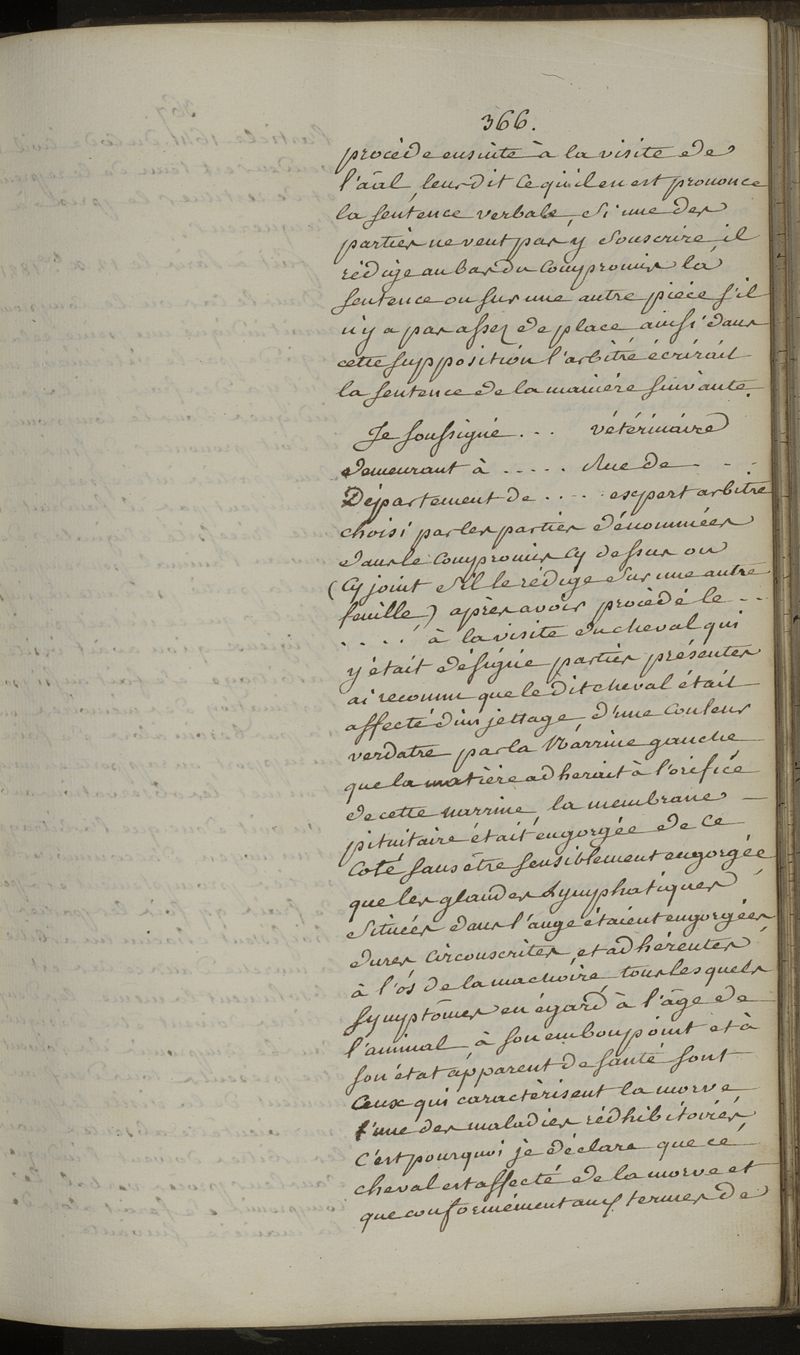 366.
procède ensuite à la visite de
l'aâl leur dit ce qu'il en est prononce
la sentence verbale, si une des
parties ne veut pas y souscrire, il
rédige au bas du compromis la
sentence ou sur une autre pièce s'il
n'y a pas assez de place ainsi dans
cette supposition l'arbitre écrirait
la sentence de la manière suivante.
Je soussigné ... vétérinaire
demeurant à ..... Rue de . . .
Département de .... expert arbitre
choisi par les parties dénommées
dans le compromis cy dessus ou
(cy joint s'il le rédige sur une autre
feuille) après avoir procédé le ..
..... à la visite du cheval qui
y était désigné parties présentes
ai reconnu que le dit cheval était
affecté d'un jettage d'une couleur
verdatre par la Narrine gauche
que la matière adherait à l'orifice
de cette narrine, la membrane —
pituitaire était engorgée de ce
Coté sans être sensiblement engorgée
que les glandes Lymphatiques
situées dans l'auge étaient engorgées
dures circonscrites, et adhérentes
à l'ós de la machoire, tous lesquels
symptômes eu égard à l'âge de
l'animal, à son embonpoint et à
son état apparent de santé sont
Ceux qui caractèrisent la morve
l'une des maladies rédhibitoires
C'est pourquoi je déclare que ce
cheval est affecté de la morve et
que conformément aux termes de